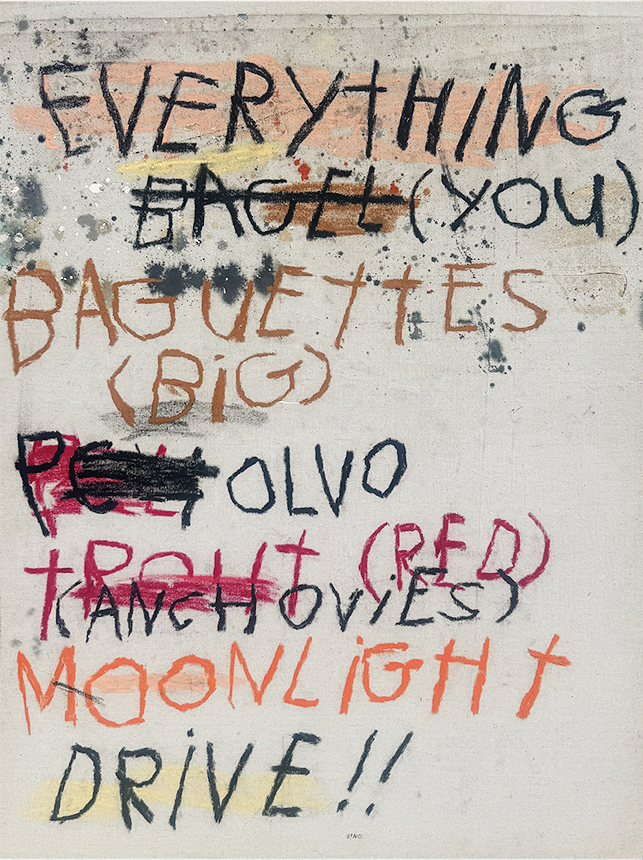 EVERYTHING
BAGEL (YOU)
BAGUETTES
(BiG)
OLVO
tROUt (RED)
(ANCHOViES)
MOONLiGHt
DRiVE!!